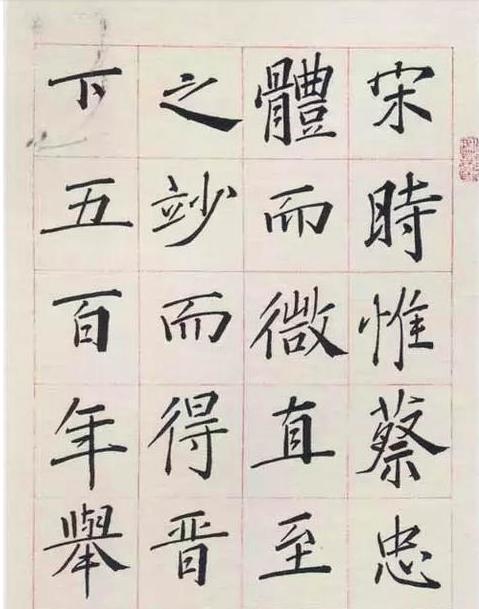 宋時惟蔡忠
體而微直至
之竗而得晋
下五百年舉